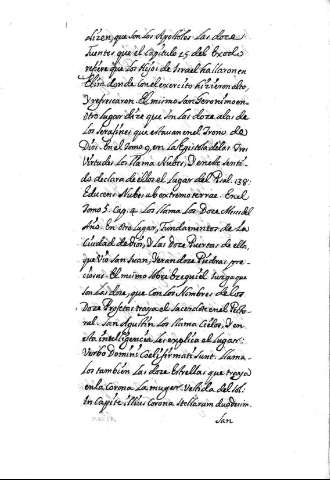 dizen, que son los Apostoles las doze
fuentes que el Capitulo 15 del Exodo
refiere que los Hijos de Israel hallaron en
Elim donde con el exercito hizieron alto,
y refrescaron. El mismo San Geronimo en
otro lugar dize que son las doze alas de
los Serafines que estavan en el Trono de
Dios. En el tomo 9, en la Epistola de las Tres
Virtudes los llama Nubes, y en este senti-
do declara de ellos el lugar del Psal. 138.
Educens Nubes ab extremo terrae. En el
tomo 5. Cap. 4. los llama los Doze Meses del
Año. En otro lugar, Fundamentos de la
Ciudad de Dios, y las Doze Puertas de ella,
que vió San Juan, y eran doze Piedras pre-
ciosas. El mismo sobre Ezequiel juzga que
son las doze, que con los Nombres de los
Doze Profetas traya el Sacerdote en el Pecto-
ral. San Agustin los llama Cielos, y en
esta inteligencia les explica el lugar:
Verbo Domini Coeli firmati sunt. llama-
los tambien las doze Estrellas que traya
en la Corona la muger vestida del Sol:
In Capite illius Corona stellarum duodecim.
San